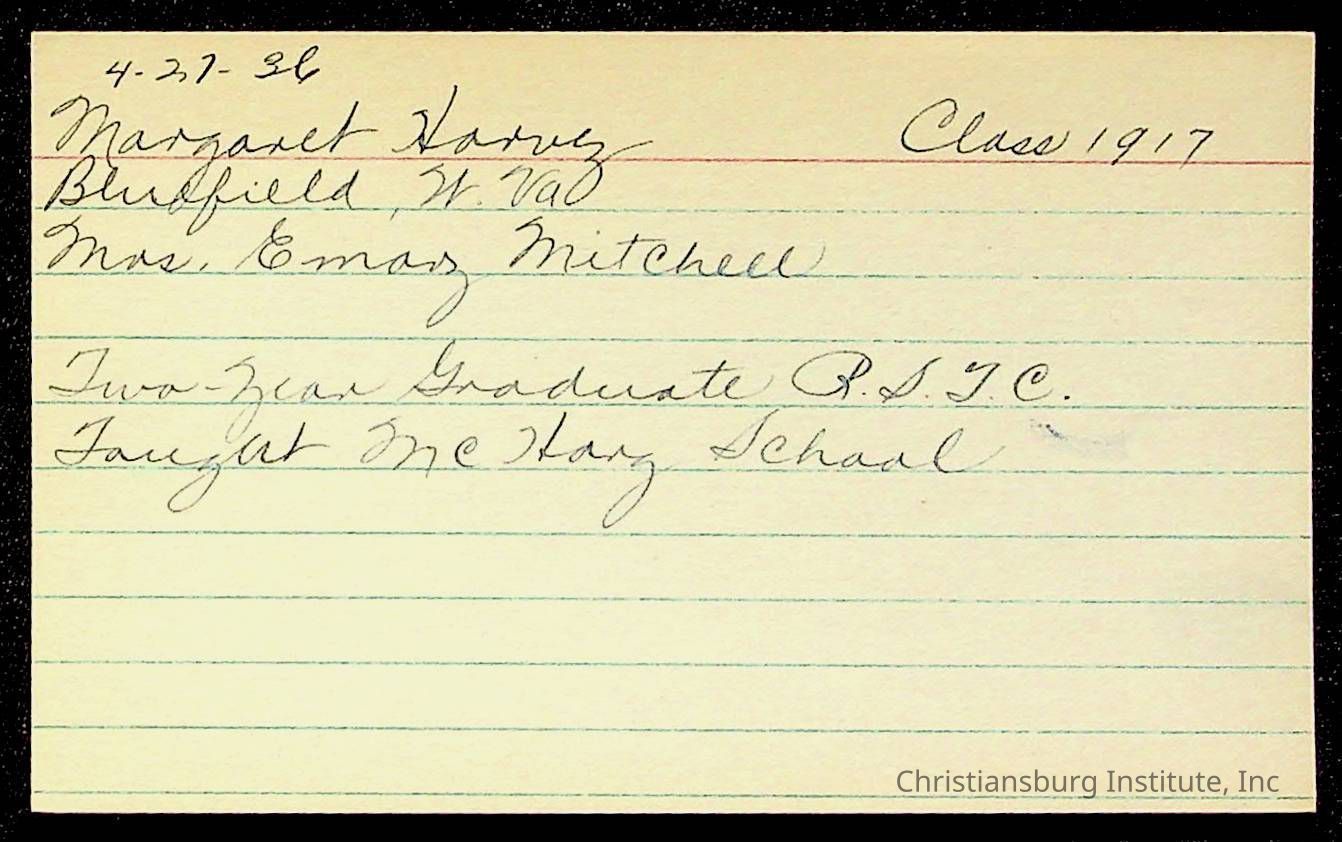 4-27-36
Margaret Harvey Class 1917
Bluefield, W. Va
Mrs. Emory Mitchell
Two-Year Graduate R.S.T.C.
Taught McHarg School
Christiansburg Institute, Inc